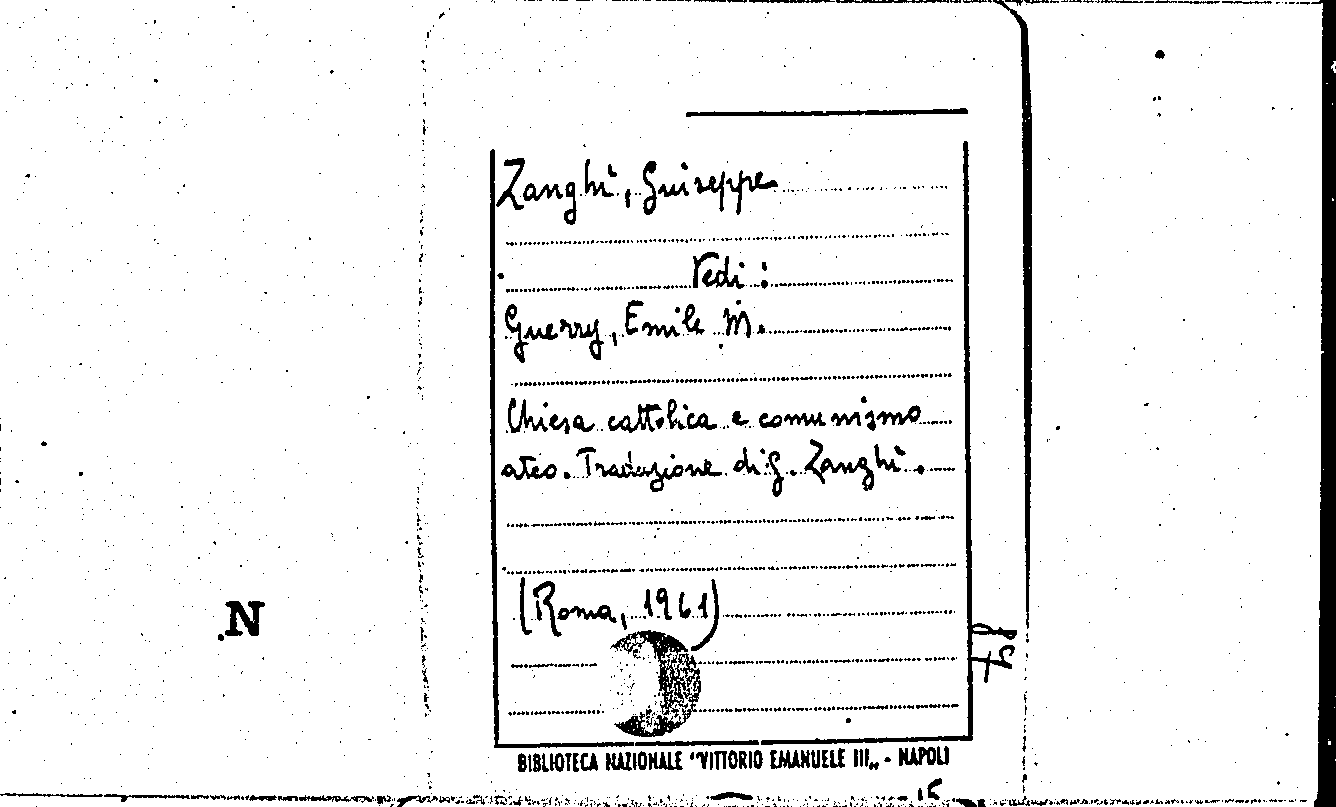 Zanghì, Guiseppe
Vedi :
Guerry, Emile M.
Chiesa cattolica e comunismo
ateo. Traduzione di G. Zanghì.
(Roma, 1961)
N
BIBLIOTECA NAZIONALE "VITTORIO EMANUELE III„ - NAPOLI